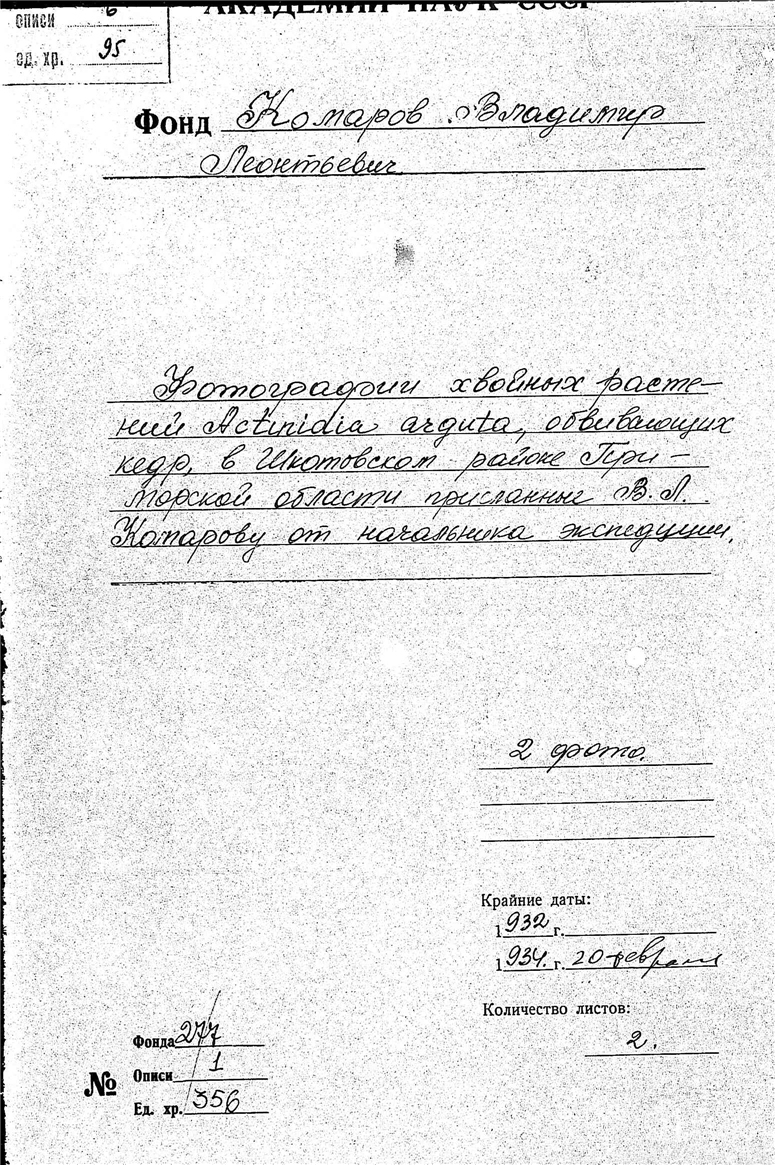 описи 6
ед. хр. 95
АКАДЕМИЙ НАУК СССР
Фонд Комаров Владимир
Леонтьевич.
Фотографии хвойных расте-
ний Actinidia arguta, обвивающих
кедр, в Шкотовском районе При-
морской области присланные В.Л.
Комарову от начальника экспедиции.
2 фото.
Крайние даты:
1932 г.
1934. г. 20 февраля
Количество листов:
2.
Фонда 277
№ Описи 1
Ед. хр. 356